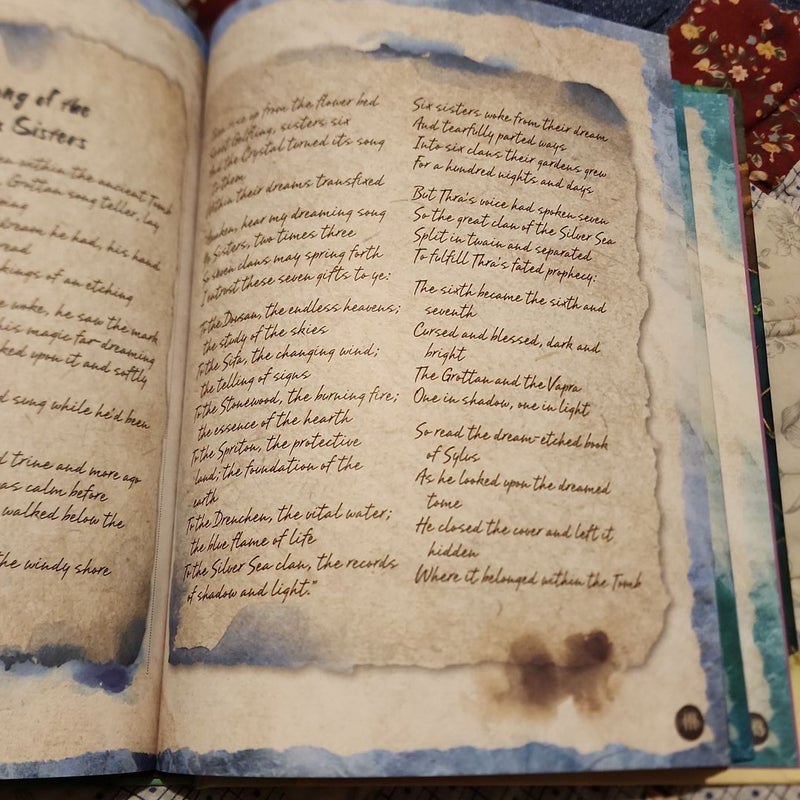 ong of the
Sisters
within the ancient Tomb
Grottan song teller, lay
dream he had, his hand
kings of an etching
woke, he saw the mark
his magic far-dreaming
ked upon it and softly
d sung while he'd been
d trine and more ago
as calm before
walked below the
the windy shore
up from the flower bed
Gelfling, sisters six
the Crystal turned its song
To them
Within their dreams transfixed
hear my dreaming song
Sisters, two times three
So seven clans may spring forth
I entrust these seven gifts to ye:
To the Dousan, the endless heavens;
the study of the skies
To the Sifa, the changing wind;
the telling of signs
To the Stonewood, the burning fire;
the essence of the hearth
To the Spriton, the protective
land; the foundation of the
earth
To the Drenchen, the vital water;
the blue flame of life
To the Silver Sea clan, the records
of shadow and light."
Six sisters woke from their dream
And tearfully parted ways
Into six clans their gardens grew
For a hundred nights and days
But Thra's voice had spoken seven
So the great clan of the Silver Sea
Split in twain and separated
To fulfill Thra's fated prophecy:
The sixth became the sixth and
seventh
Cursed and blessed, dark and
bright
The Grottan and the Vapra
One in shadow, one in light
So read the dream-etched book
of Sylus
As he looked upon the dreamed
tome
He closed the cover and left it
hidden
Where it belonged within the Tomb